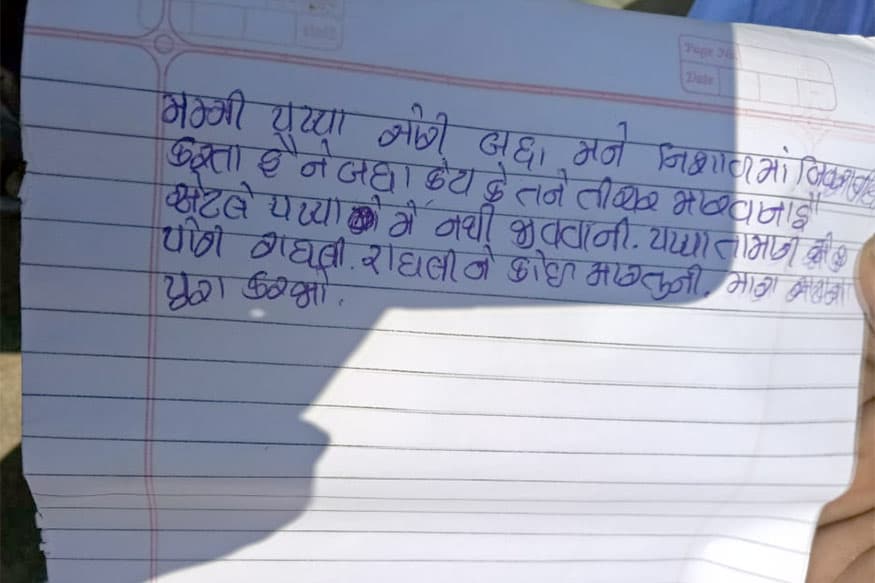 Page No
Date
મમ્મી પપ્પા સોરી બધા મને નિશાળમાં
કરતા છે ને બધા કેય કે તને તીચર મારવાના છે
એટલે પપ્પા મેં નથી જીવવાની. પપ્પા તમારી
પોરી રાધલી. રાધલીને કોઈ મારતુની. મારા
પુરા કરજો.